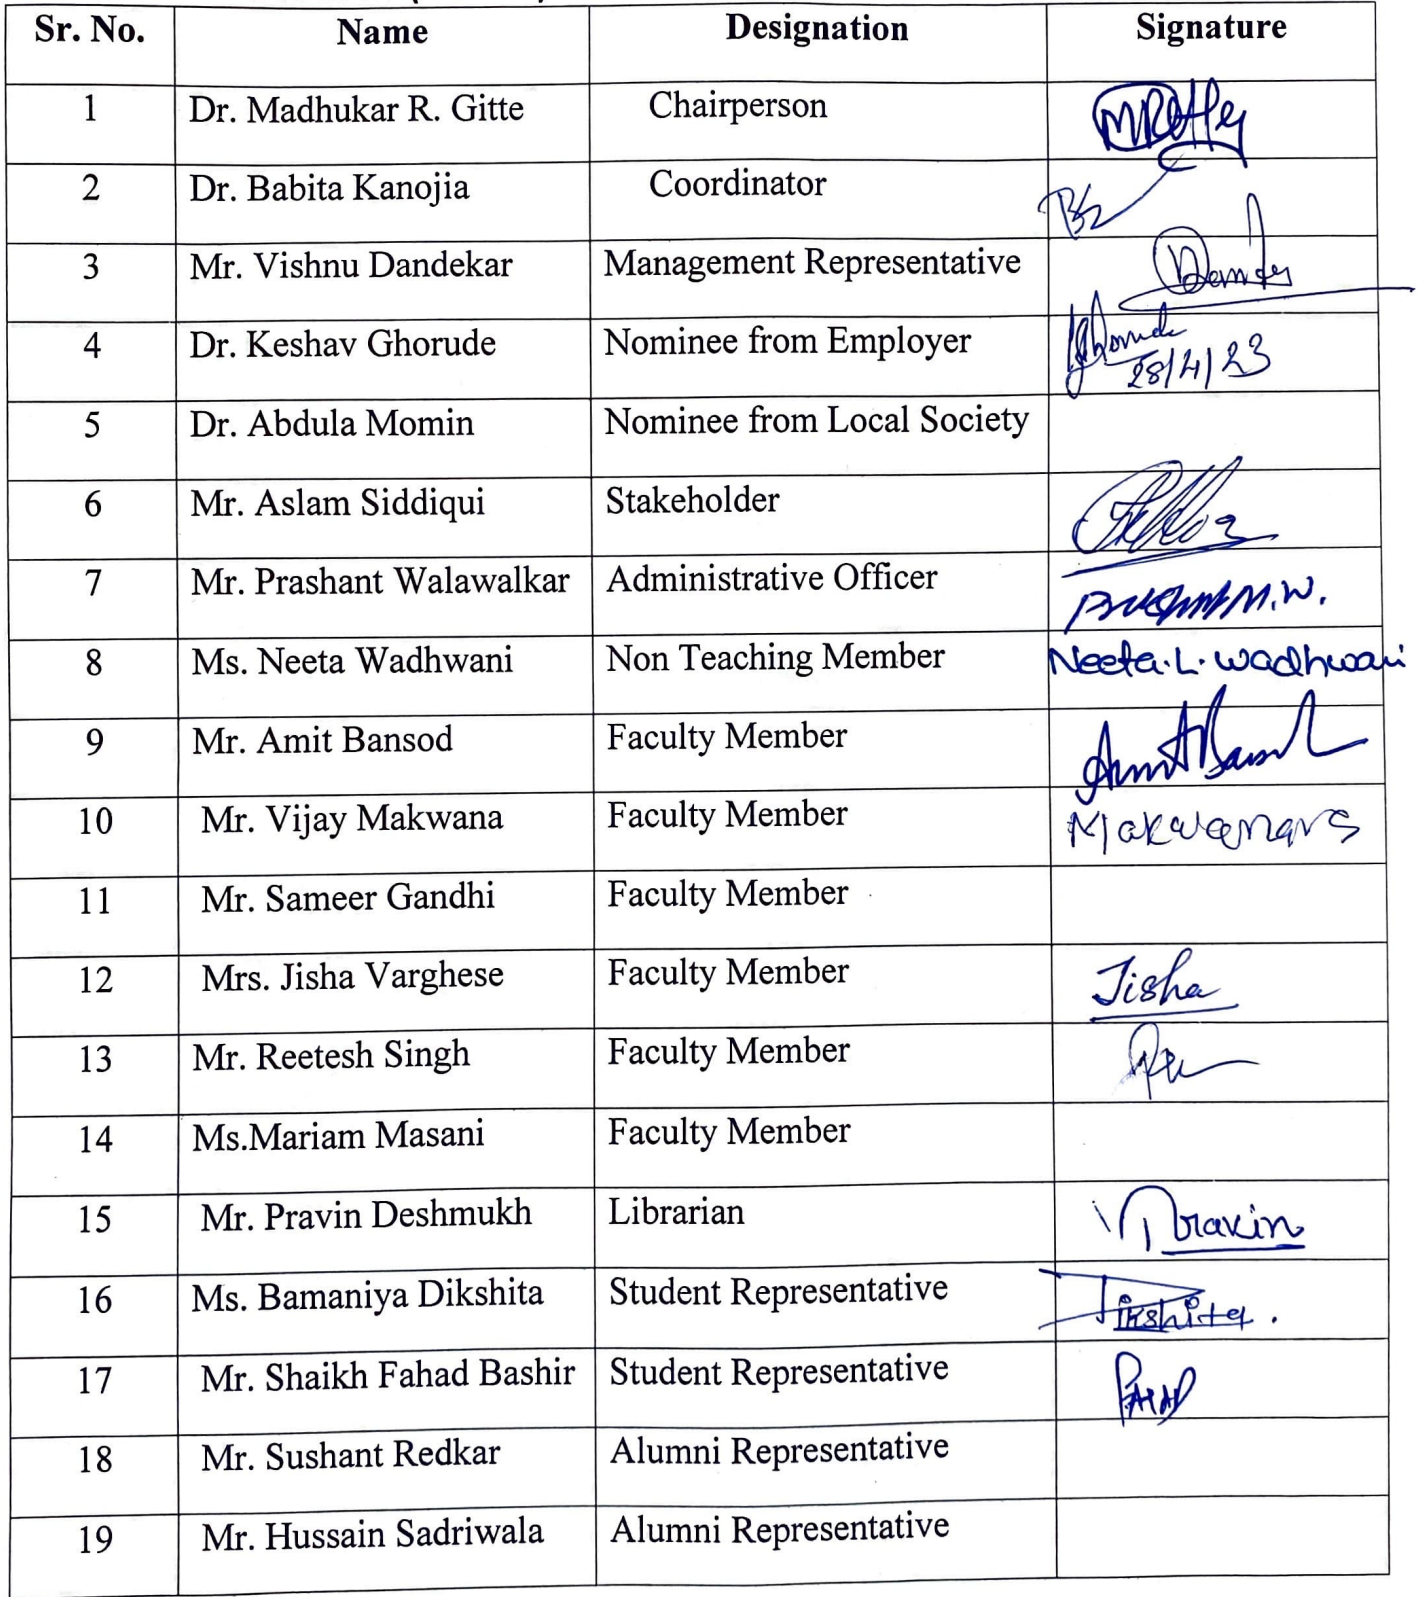 Sr. No. Name Designation Signature
1 Dr. Madhukar R. Gitte Chairperson
2 Dr. Babita Kanojia Coordinator
3 Mr. Vishnu Dandekar Management Representative
4 Dr. Keshav Ghorude Nominee from Employer
28/4/23
5 Dr. Abdula Momin Nominee from Local Society
6 Mr. Aslam Siddiqui Stakeholder
7 Mr. Prashant Walawalkar Administrative Officer M.W.
8 Ms. Neeta Wadhwani Non Teaching Member Neeta.L.Wadhwani
9 Mr. Amit Bansod Faculty Member
10 Mr. Vijay Makwana Faculty Member
11 Mr. Sameer Gandhi Faculty Member
12 Mrs. Jisha Varghese Faculty Member Jisha
13 Mr. Reetesh Singh Faculty Member
14 Ms.Mariam Masani Faculty Member
15 Mr. Pravin Deshmukh Librarian Pravin
16 Ms. Bamaniya Dikshita Student Representative Dikshita.
17 Mr. Shaikh Fahad Bashir Student Representative FAHAD
18 Mr. Sushant Redkar Alumni Representative
19 Mr. Hussain Sadriwala Alumni Representative